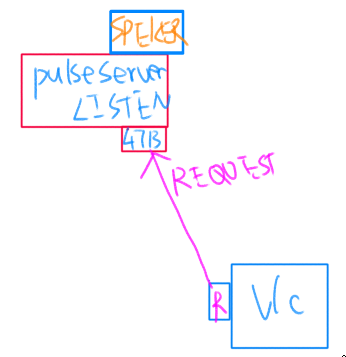 SPEKER
pulseserver
LISTEN
4713
REQUEST
R